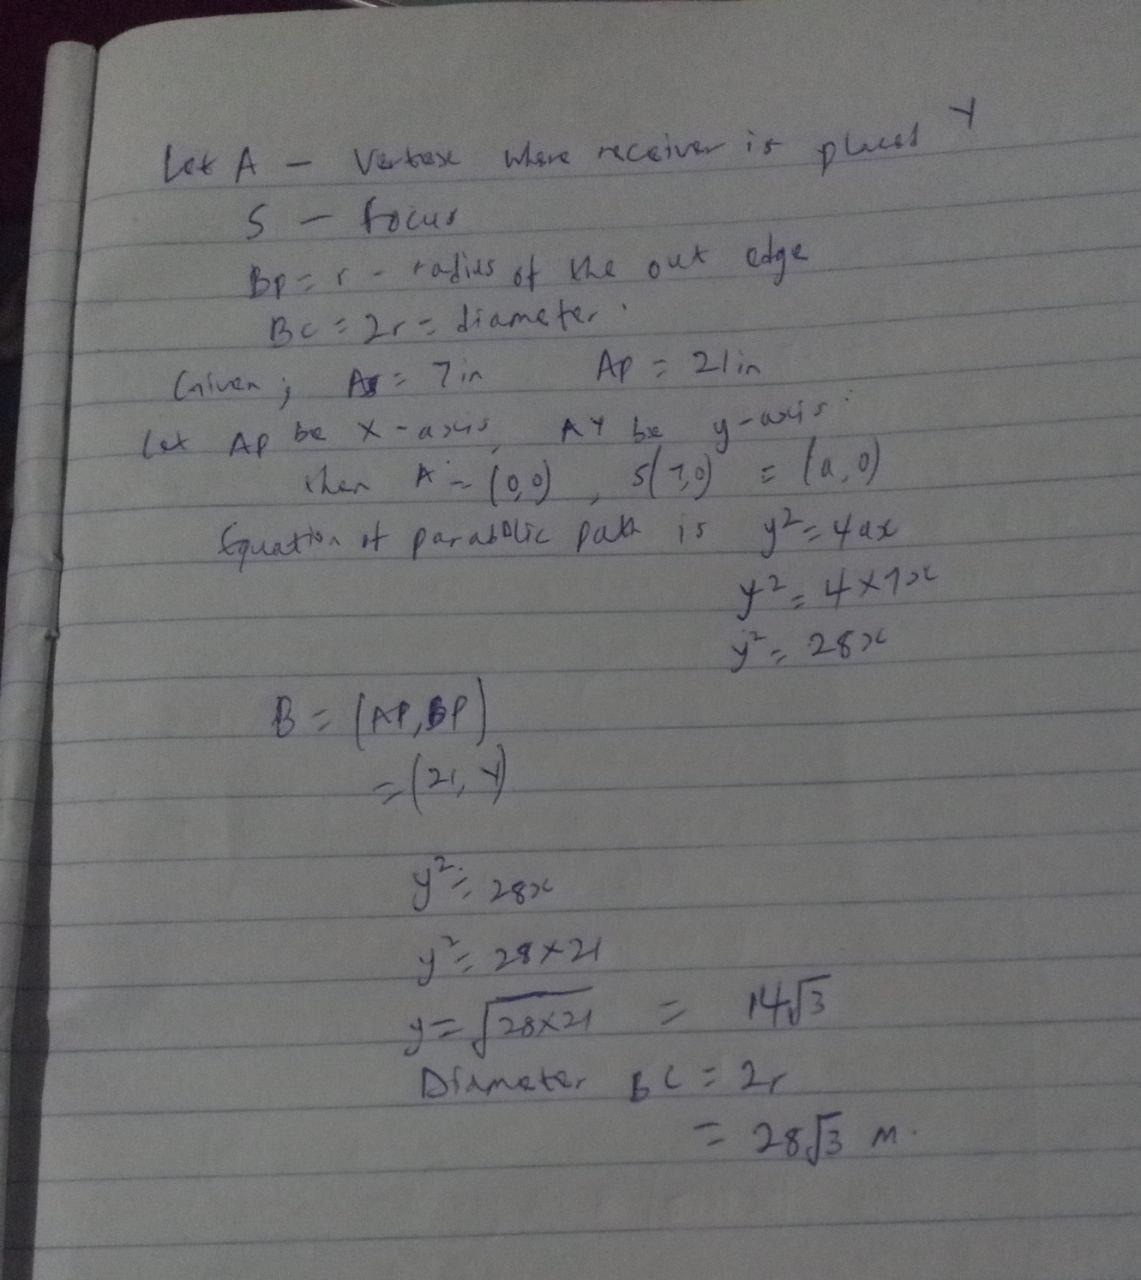 Let A - Vertex where receiver is placed Y
S - focus
BP = r - radius of the out edge
BC = 2r = diameter.
Given; AS = 7in AP = 21in
Let AP be X-axis, AY be y-axis.
then A = (0,0), S(7,0) = (a,0)
Equation of parabolic path is y² = 4ax
y² = 4×7x
y² = 28x
B = (AP, BP)
= (21, Y)
y² = 28x
y² = 28×21
y = √28×21 = 14√3
Diameter BC = 2r
= 28√3 m.